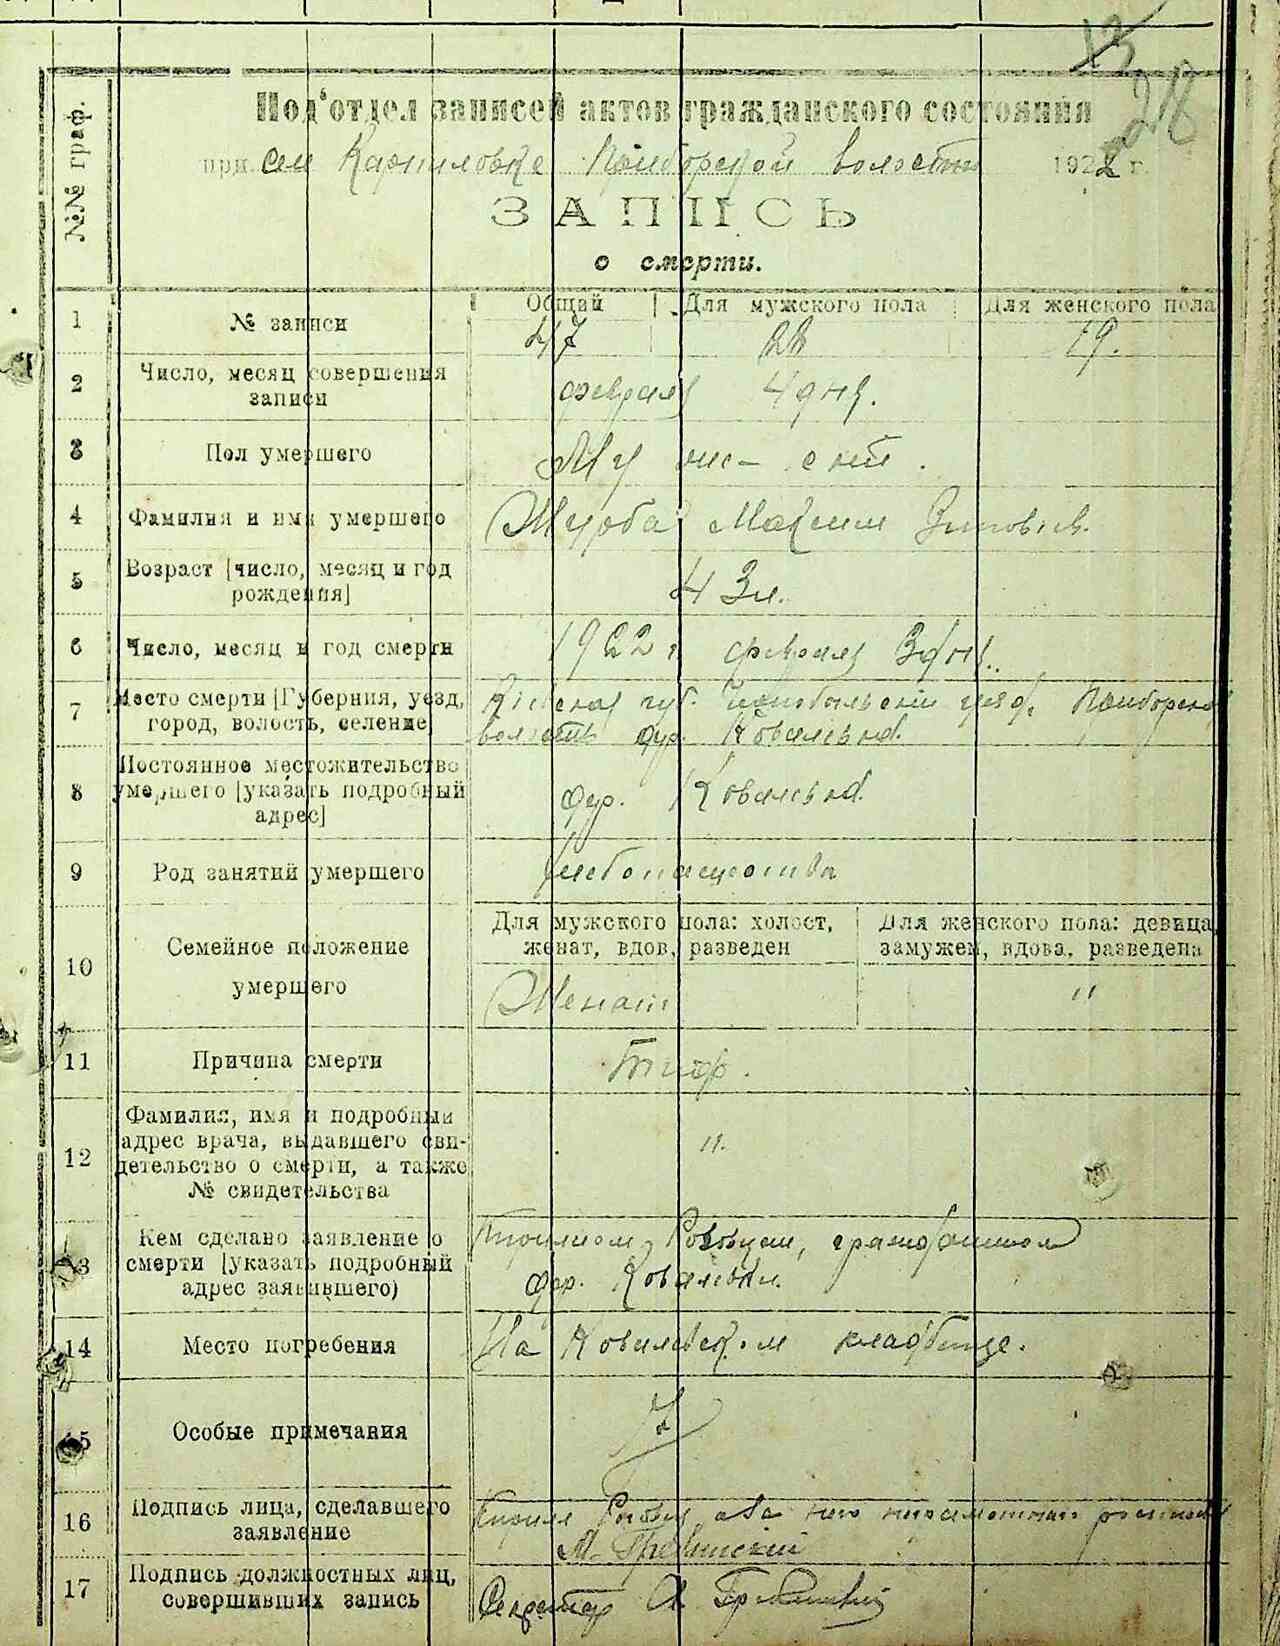 13
28
№№ граф.
Под'отдел записей актов гражданского состояния
при сел Карпиловке Приборской волости 1922 г.
ЗАПИСЬ
о смерти.
1 № записи Общий Для мужского пола Для женского пола
47 28 19.
2 Число, месяц совершения записи
февраля 4 дня.
3 Пол умершего
Мужс-кий.
4 Фамилия и имя умершего
Журба Максим Зиновьев.
5 Возраст [число, месяц и год рождения]
43 л.
6 Число, месяц и год смерти
1922 г. февраля 3 дня.
7 Место смерти [Губерния, уезд, город, волость, селение]
Киевская губ. Чернобыльский уезд, Приборская
волость дер. Ковалевка.
8 Постоянное местожительство умершего [указать подробный адрес]
дер. Ковалевка.
9 Род занятий умершего
Хлебопашество
10 Семейное положение умершего
Для мужского пола: холост, женат, вдов, разведен
Для женского пола: девица, замужем, вдова, разведена
Женат "
11 Причина смерти
Тиф.
12 Фамилия, имя и подробный адрес врача, выдавшего свидетельство о смерти, а также № свидетельства
".
13 Кем сделано заявление о смерти [указать подробный адрес заявившего)
гражданином
дер. Ковалевки.
14 Место погребения
На Ковалевском кладбище.
15 Особые примечания
16 Подпись лица, сделавшего заявление
Кирилл
17 Подпись должностных лиц, совершивших запись
Секретарь